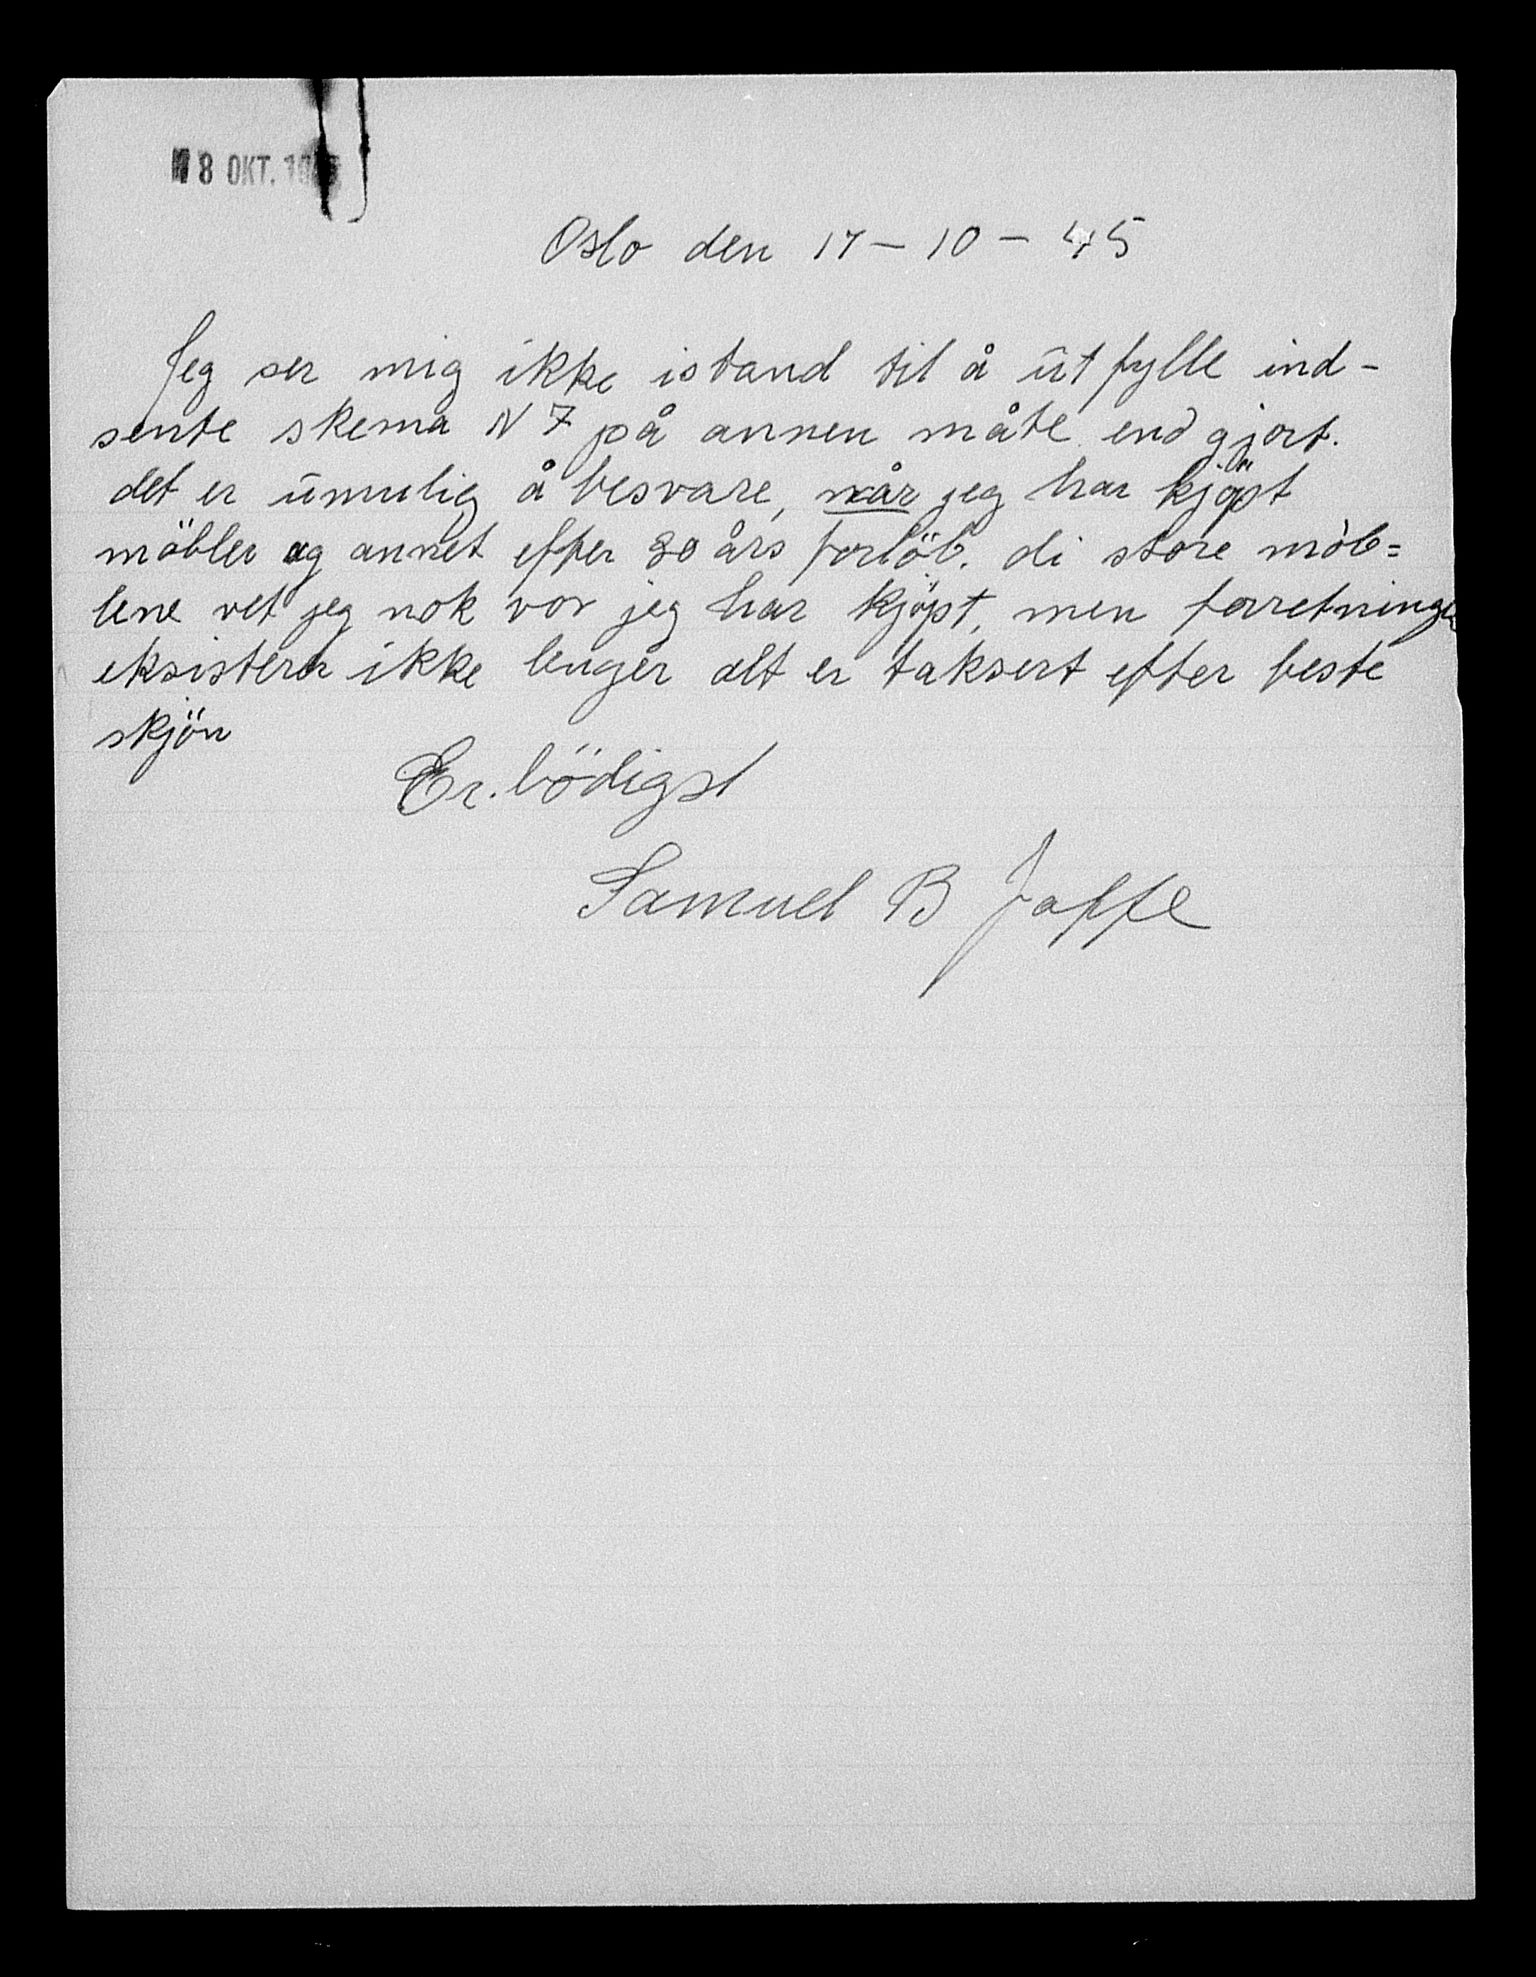 8 OKT. 19
Oslo den 17 – 10 – 45
Jeg ser mig ikke istand til å ūtfylle ind-
sente skema N 7 på annen måte end gjort.
det er ūmulig å besvare, når jeg har kjöpt
möbler og annet efter 30 års forlöb. di store möb=
lene vet jeg nok vor jeg har kjöpt, men forretningen
eksisterer ikke lenger alt er taksert efter beste
skjön
Er.bödigst
Samuel B Jaffe